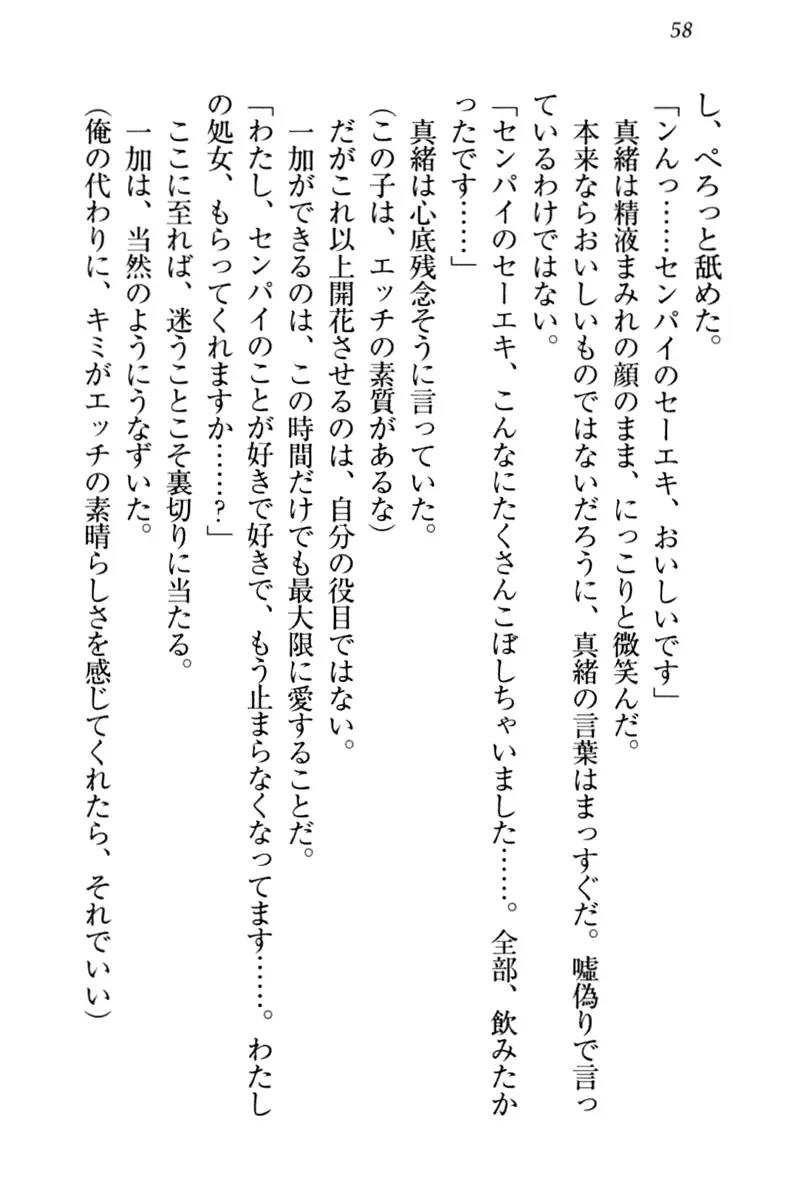 58
し、ぺろっと舐めた。
「ンんっ……センパイのセーエキ、おいしいです」
真緒は精液まみれの顔のまま、にっこりと微笑んだ。
本来ならおいしいものではないだろうに、真緒の言葉はまっすぐだ。嘘偽りで言っ
ているわけではない。
「センパイのセーエキ、こんなにたくさんこぼしちゃいました……。全部、飲みたか
ったです……」
真緒は心底残念そうに言っていた。
(この子は、エッチの素質があるな)
だがこれ以上開花させるのは、自分の役目ではない。
一加ができるのは、この時間だけでも最大限に愛することだ。
「わたし、センパイのことが好きで好きで、もう止まらなくなってます……。わたし
の処女、もらってくれますか……?」
ここに至れば、迷うことこそ裏切りに当たる。
一加は、当然のようにうなずいた。
(俺の代わりに、キミがエッチの素晴らしさを感じてくれたら、それでいい)